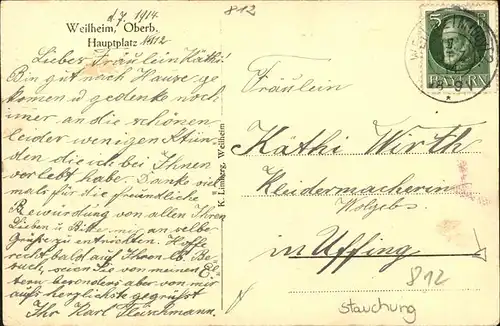 d. 7. 1914.
Weilheim, Oberb.
Hauptplatz 1412
Liebes Fräulein Käthi!
Bin gut nach Hause ge
komen u gedenke noch
imer an die schönen
leider wenigen Stün,
den die ich bei Ihnen
verlebt habe. Danke viel
mals für die freundliche
Bewirdung von allen Ihren
Lieben u Bitte mir an selbe
Grüße zu entrichten. Hoffe
recht bald auf Ihren lb. Be
such, seien Sie von meinen E
tern besonders aber von mir
aufs herzlichste gegrüsst
Ihr Karl Fleischmann.
K. Limberg, Weilheim
812
5
BAYERN
Fräulein
Käthi Wirth
Kleidermacherin
in Uffing
812
Stauchung